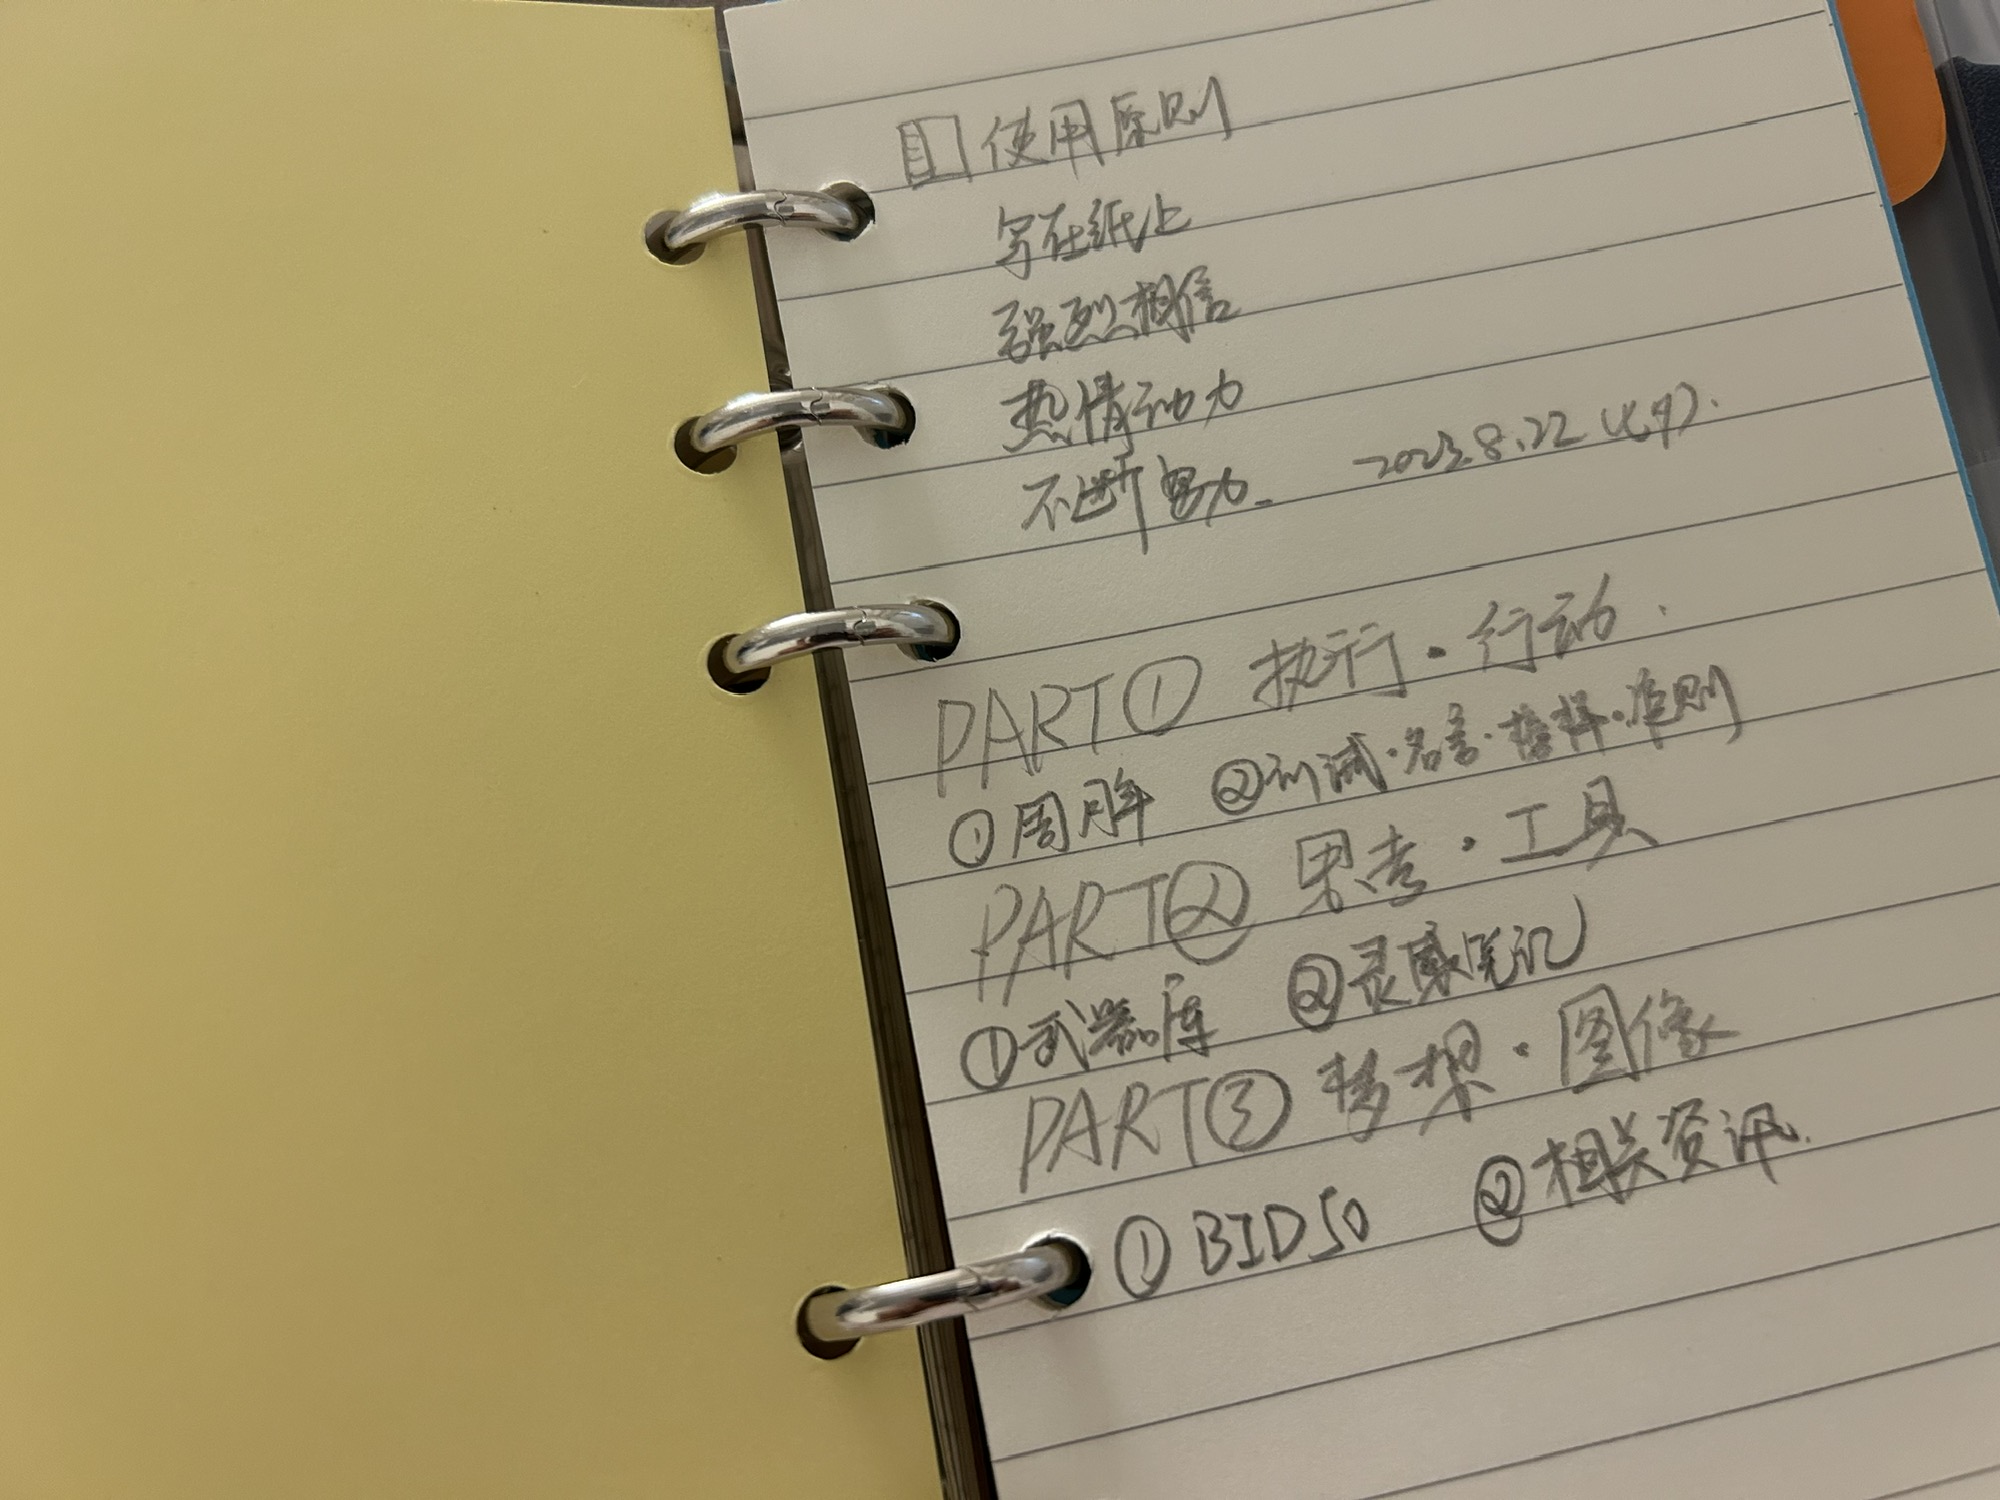 使用原则
写在纸上
强烈相信
热情动力
不断努力. 2023.8.22 (七夕).
PART① 执行·行动.
①周月年 ②训诫·名言·榜样·准则
PART② 思考·工具
①武器库 ②灵感笔记
PART③ 梦想·图像
① BID50 ②相关资讯.